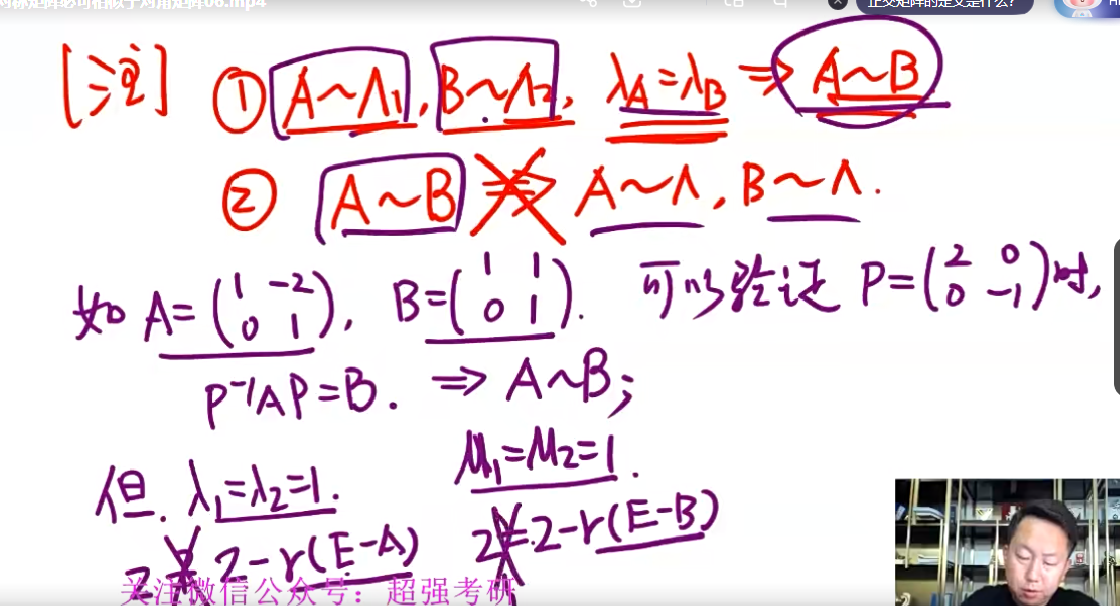 对称矩阵必可相似于对角矩阵06.mp4
正交矩阵的定义是什么？
[注] ① A~Λ₁, B~Λ₂, λ_A=λ_B ⇒ A~B
② A~B ⇏ A~Λ, B~Λ.
如 A=(1 -2; 0 1), B=(1 1; 0 1). 可以验证 P=(2 0; 0 -1)时,
P⁻¹AP=B. ⇒ A~B;
但. λ₁=λ₂=1. μ₁=μ₂=1.
2≠2-r(E-A) 2≠2-r(E-B)
关注微信公众号：超强考研